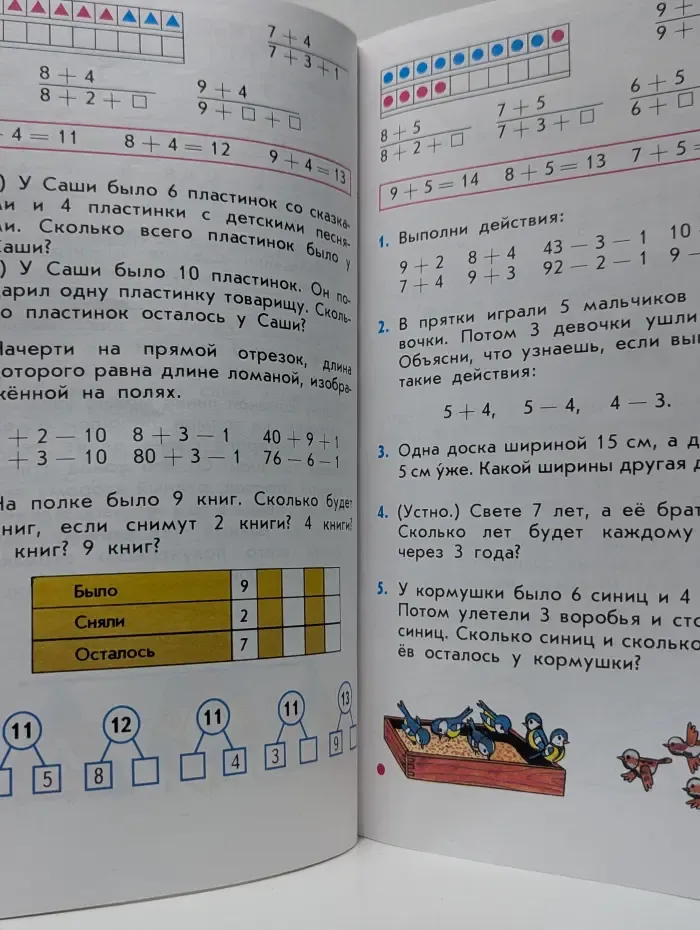 7 + 4
7 + 3 + 1
8 + 4
8 + 2 + □
9 + 4
9 + □ + □
+ 4 = 11 8 + 4 = 12 9 + 4 = 13
) У Саши было 6 пластинок со сказка-
ми и 4 пластинки с детскими песня-
ми. Сколько всего пластинок было у
Саши?
) У Саши было 10 пластинок. Он по-
дарил одну пластинку товарищу. Сколь-
ко пластинок осталось у Саши?
Начерти на прямой отрезок, длина
которого равна длине ломаной, изобра-
жённой на полях.
+ 2 − 10 8 + 3 − 1 40 + 9 + 1
+ 3 − 10 80 + 3 − 1 76 − 6 − 1
На полке было 9 книг. Сколько будет
книг, если снимут 2 книги? 4 книги?
книг? 9 книг?
Было 9
Сняли 2
Осталось 7
11 12 11 11 13
5 8 4 3 9
9 +
9 +
8 + 5
8 + 2 + □
7 + 5
7 + 3 + □
6 + 5
6 + □
9 + 5 = 14 8 + 5 = 13 7 + 5 =
1. Выполни действия:
9 + 2 8 + 4 43 − 3 − 1 10
7 + 4 9 + 3 92 − 2 − 1 9 −
2. В прятки играли 5 мальчиков
вочки. Потом 3 девочки ушли
Объясни, что узнаешь, если вы
такие действия:
5 + 4, 5 − 4, 4 − 3.
3. Одна доска шириной 15 см, а д
5 см у́же. Какой ширины другая д
4. (Устно.) Свете 7 лет, а её брат
Сколько лет будет каждому
через 3 года?
5. У кормушки было 6 синиц и 4
Потом улетели 3 воробья и сто
синиц. Сколько синиц и сколько
ёв осталось у кормушки?